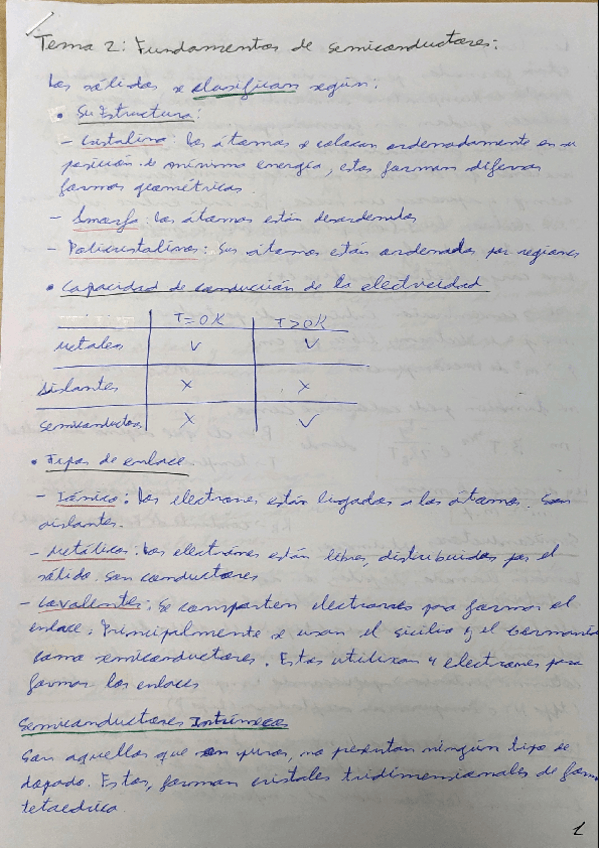 Tema 2: Fundamentos de semiconductores:
Los sólidos se clasifican según:
• Su Estructura:
- Cristalina: Los átomos se colocan ordenadamente en su
posición de mínima energía, estos forman diferentes
formas geométricas.
- Amorfo: Los átomos están desordenados
- Policristalinos: Sus átomos están ordenados por regiones
• Capacidad de conducción de la electricidad
T=0K T>0K
Metales V V
Aislantes X X
Semiconductor X V
• Tipos de enlace
- Iónico: Los electrones están ligados a los átomos. Son
aislantes.
- Metálicos: Los electrones están libres, distribuidos por el
sólido. Son conductores
- Covalentes: Se comparten electrones para formar el
enlace. Principalmente se usan el silicio y el Germanio
como semiconductores. Estos utilizan 4 electrones para
formar los enlaces
Semiconductores Intrínsecos
Son aquellos que son puros, no presentan ningún tipo de
dopado. Estos, forman cristales tridimensionales de forma
tetaedrica.
1